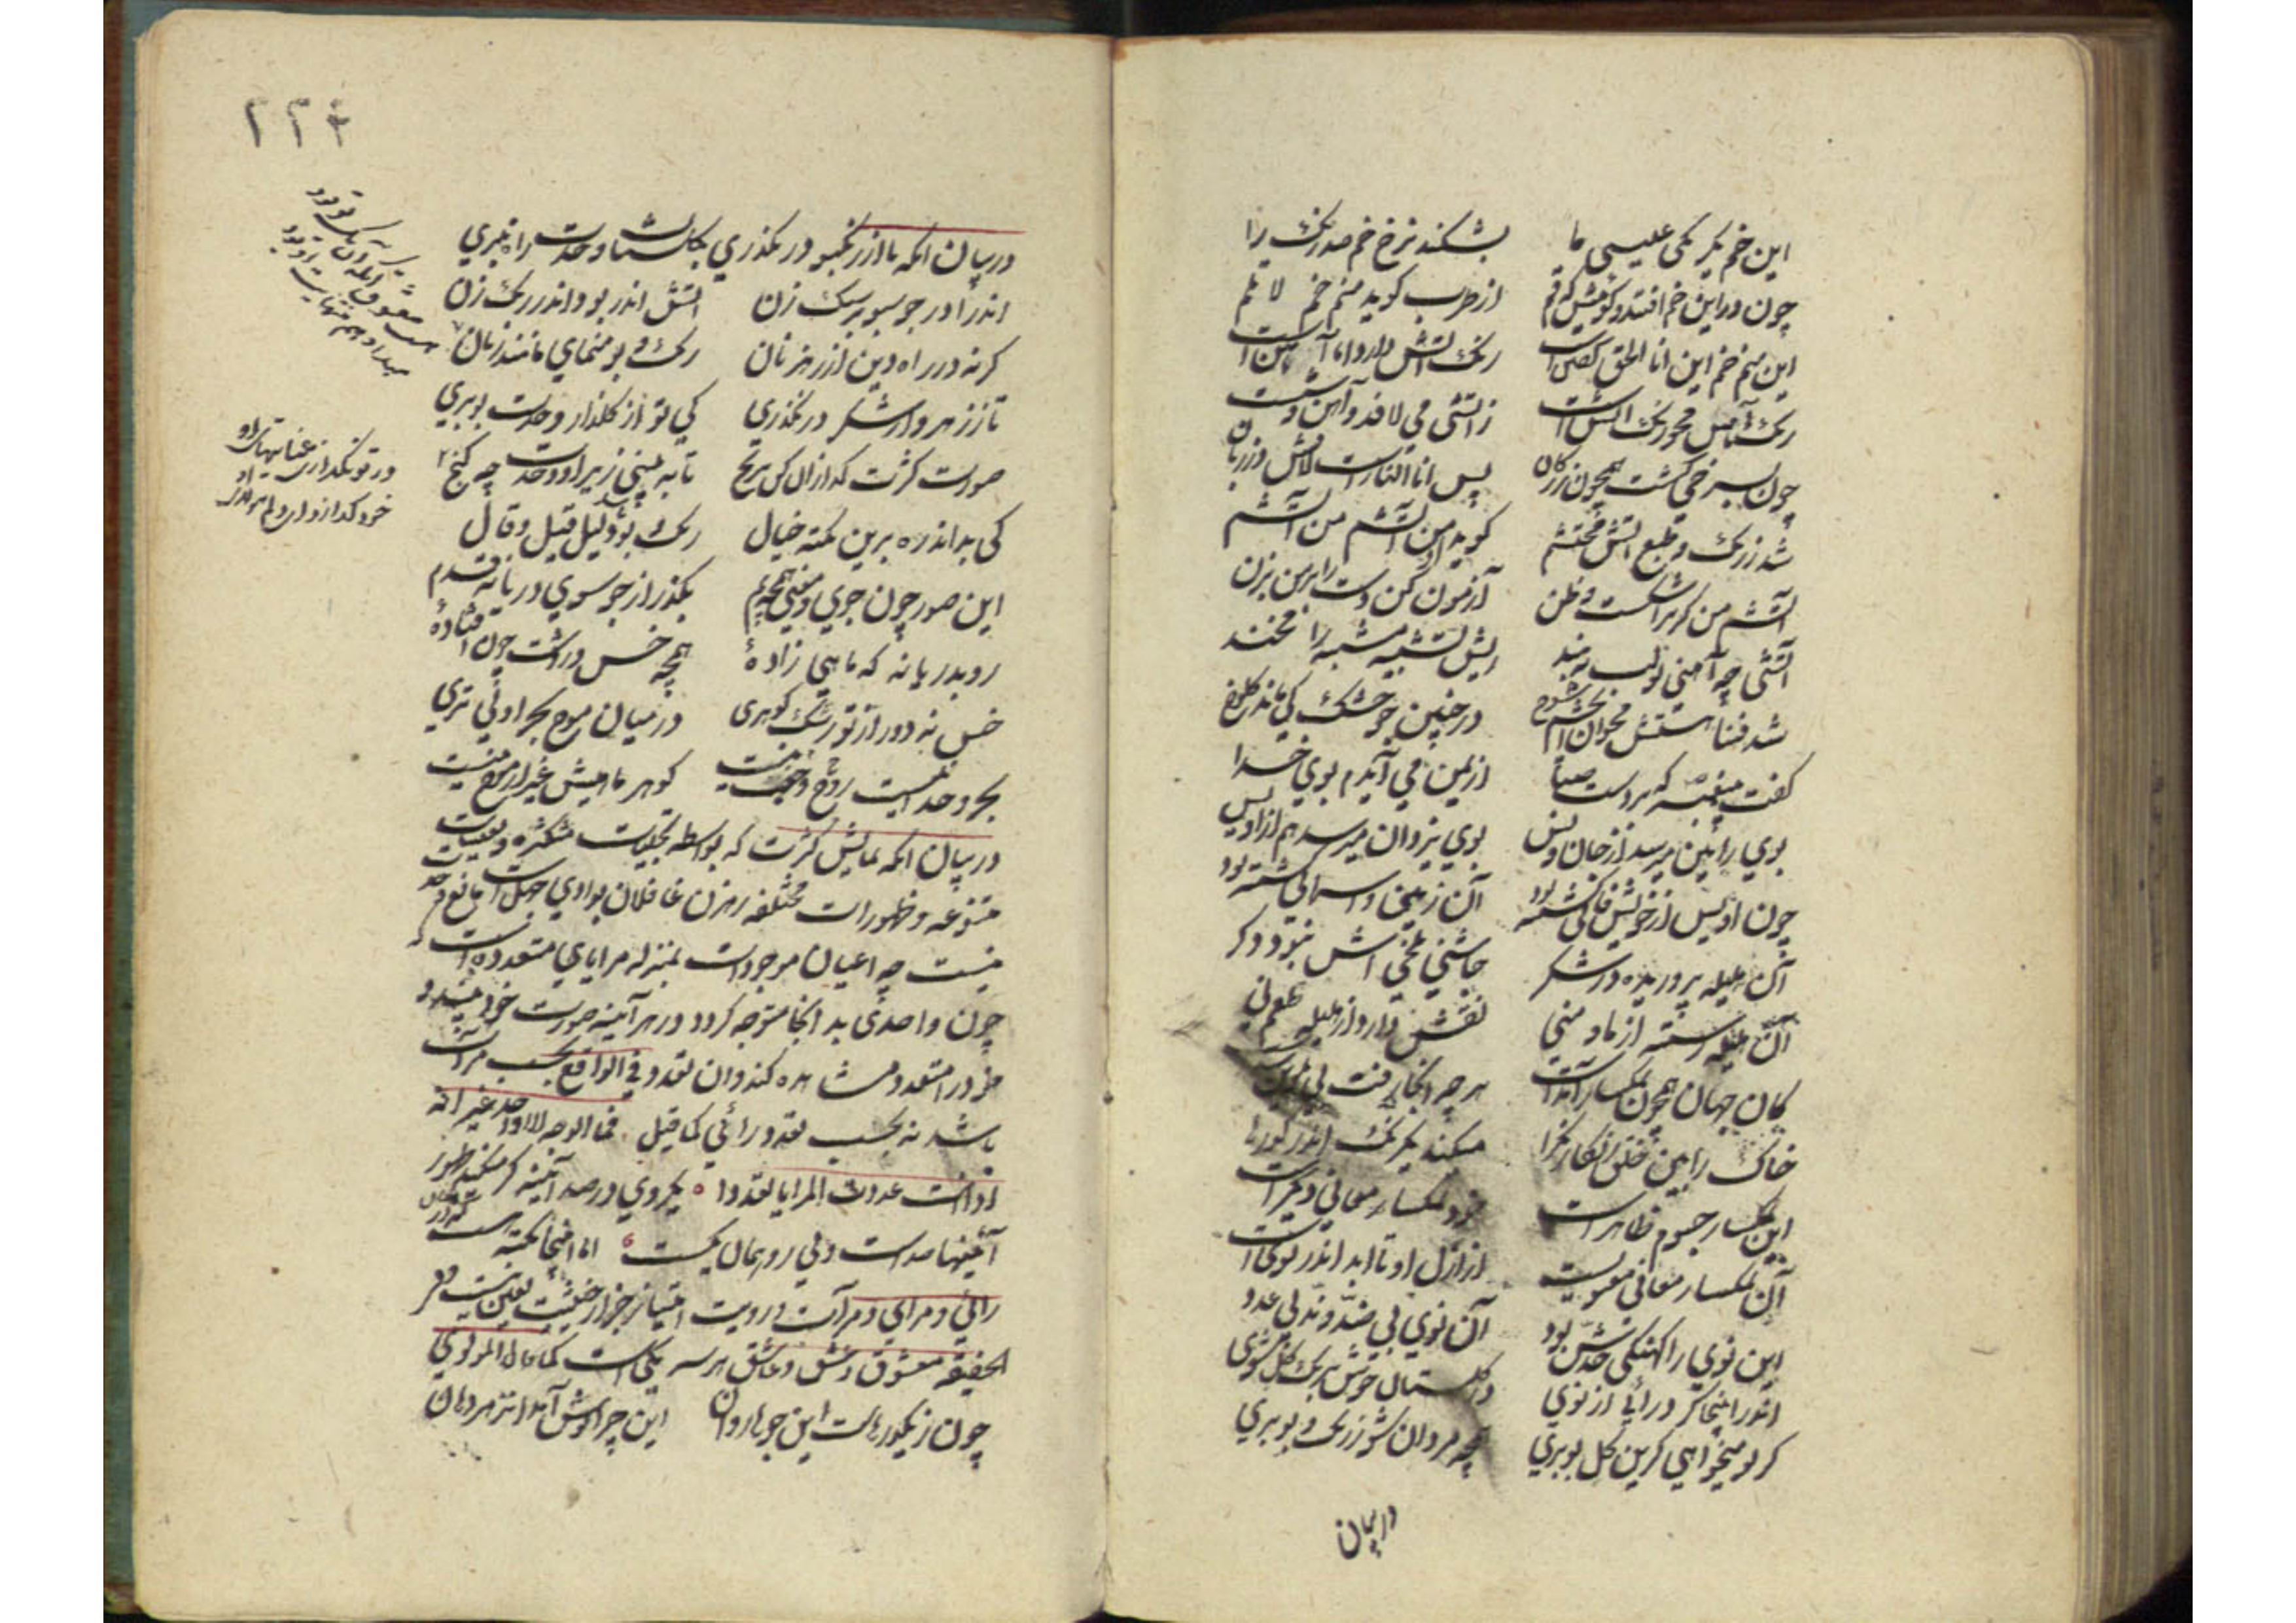 این خم یکرنگی عیسی ما بشکند نرخ خم صدرنک را
چون دراین خم افتد و کوئیش که قم از طرب کوید منم خم لا تلم
این منم خم این انا الحق کفتن است رنک اتش دارد اما آهن است
رنک آهن محو رنک اتش است زاتشی می لافد و آهن وش است
چون بسرخی کشت همچون زر کان پس انا النار است لافش در زبان
شد ز رنک و طبع اتش محتشم کوید او من آتشم من آتشم
آتشم من کر ترا شکست و ظن آزمون کن دست را بر من بزن
آتشی چه آهنی چه لب به بند ریش تشبیه مشبه را مخند
شد فنا هستش مخوان ای چشم شوخ در چنین جو خشک کی ماند کلوخ
کفت پیغمبر که بر دست صبا از یمن می آیدم بوی خدا
بوی رامین میرسد از جان ویس بوی یزدان میرسد هم از اویس
چون اویس از خویش فانی کشته بود آن زمینی آسمانی کشته بود
آن هلیله پروریده در شکر چاشنی تلخی اش نبود دکر
آن هلیله رسته از ما و منی نقش دارد از هلیله طعم نی
کاین جهان همچون نمکسار آمدست هر چه آنجا رفت بی تلوین شدست
خاک را بین خلق رنکارنک را میکند یکرنک اندر کورها
این نمکسار جسوم ظاهر است خود نمکسار معانی دیکر است
آن نمکسار معانی معنویست از ازل او تا ابد اندر نویست
این نوی را کهنکی ضدش بود آن نوی بی ضد و ند بی عدد
اندر اینجا کر درآیا از نوی در کلستان خوش برنک کل شوی
کر تو میخواهی کزین کل بو بری همچه مردان شو ز رنک و بو بری
در بیان
۲۲۶
در بیان انکه تا از رنک و بو در نکذری بکلستان وحدت راه نبری
اندر آ در جو سبو بر سنک زن اتش اندر بو و اندر رنک زن
کر نه در راه دین از رهزنان رنک و بو منمای مانند زنان
تا ز زهر و از شکر در نکذری کی تو از کلزار وحدت بو بری
صورت کثرت کدازان کن برنج تا به بینی زیر او وحدت چه کنج
کی بداند ره برین نکته خیال رنک و بو شد دلیل قیل و قال
این صور چون جوی و معنی همچه یم بکذر از جو سوی دریا نه قدم
رو بدریا نه که ماهی زادهٔ همچه خس در اتش چون افتادهٔ
خس نه دور از تو رشک کوهری در میان موج بحر اولی تری
بحر وحدانیست زوج و جفت نیست کوهر ماهیش غیر از موج نیست
در بیان انکه نمایش کثرت که بواسطه تجلیات متکثره و تعینات
متنوعه و ظهورات مختلفه رهزن غافلان بوادی جهل است مانع وحدت
نیست چه اعیان موجودات بمنزله مرایای متعدده است که
چون واحدی بدانجا متوجه کردد در هر آینه صورت خود بیند و
خود را متعدد مشاهده کند و ان تعدد فی الواقع بحسب مرآت
باشد نه بحسب تعدد رائی کما قیل فما الوجه الا واحد غیر انه
اذا انت عددت المرایا تعددا یکروی در صد آینه کر میکند ظهور
آئینها صدست ولی رو همان یکیست اما اینجا نکته هست که در
رائی و مرای و مرآت و رویت امتیاز جز از حیثیت تعین نیست و فی
الحقیقه معشوق و عشق و عاشق هر سه یکی است کما قال المولوی
چون ز یکدریاست این جوها روان این چرا نوش آمد آن زهر دهان
ور تو نکدازی عنایتهای او
خود کدازد ای دلم مولای او